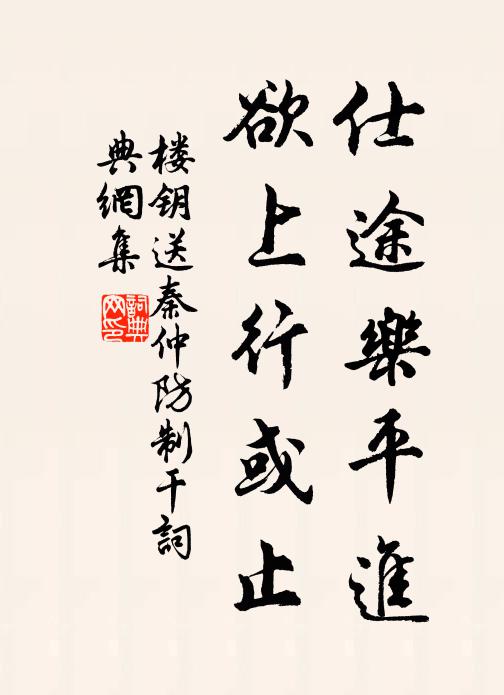 仕途樂平進
欲上行或止
楼钥送秦仲防制干詞
典網集
詞典網印